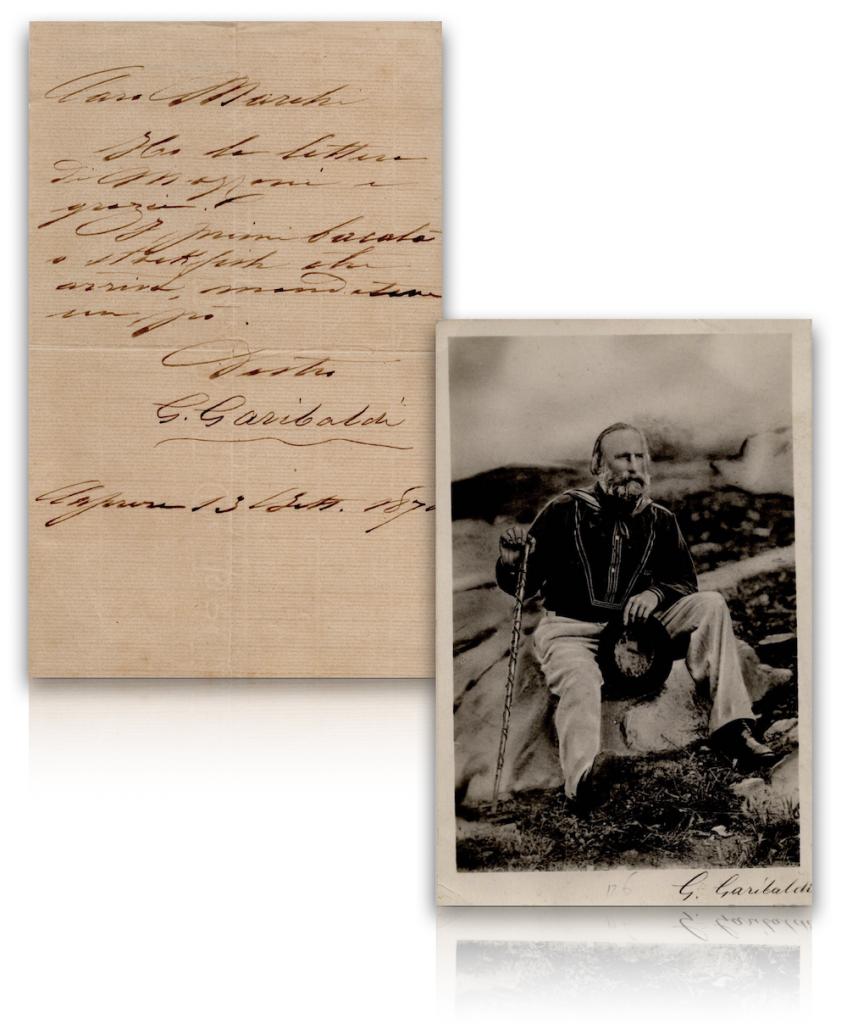 Caro Marchi
Ho la lettera
di Mazzoni e
grazie.
I primi baccalà
o stockfish che
arriva, mandatene
un pò.
Vostro
G. Garibaldi
Caprera 13 Sett. 187
G. Garibaldi